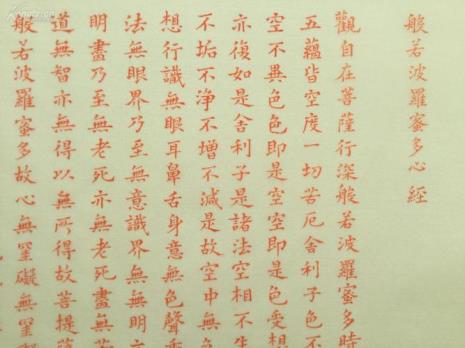 般若波羅蜜多心經
觀自在菩薩行深般若波羅蜜多時
五蘊皆空度一切苦厄舍利子色不
空不異色色即是空空即是色受想
亦復如是舍利子是諸法空相不生
不垢不淨不增不減是故空中無色
想行識無眼耳鼻舌身意無色聲香
法無眼界乃至無意識界無無明亦
明盡乃至無老死亦無老死盡無苦
道無智亦無得以無所得故菩提薩
般若波羅蜜多故心無罣礙無罣礙